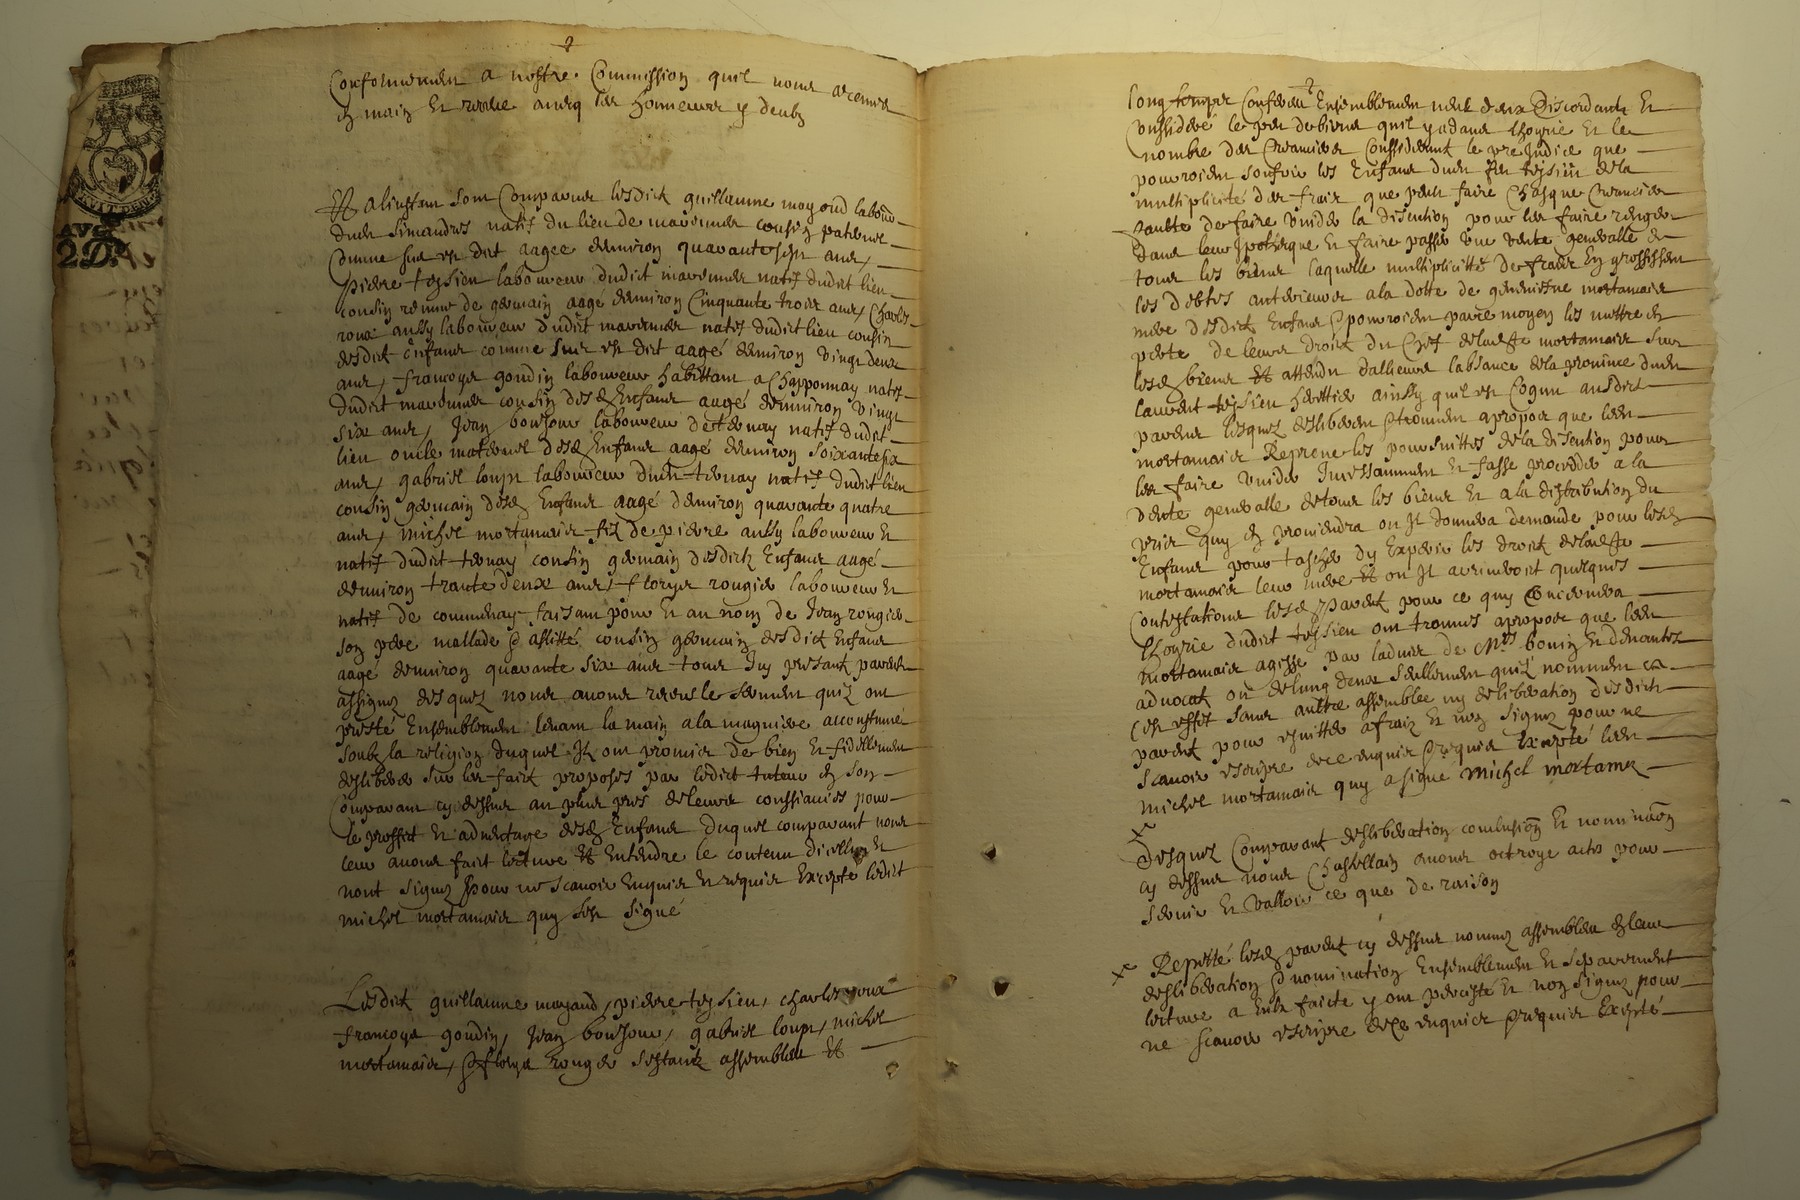 2
Conformement a nostre Commission quil nous a remise
en main et avecq les honneurs y deubz
Et a linstant sont Comparus lesdict guillaume mayoud labour-
dudict simandres natif du lieu de marennes cousin paternel
Comme sus est dit aagee denviron quarante sept ans,
pierre teyssieu laboureur dudict marennes natif dudict lieu
cousin remué de germain aagé denviron Cinquante trois ans, Charles
roux aussy laboureur dudict marennes natif dudict lieu cousin
desdict enfans comme sus est dit aagé denviron vingt deux
ans, françoys goudin laboureur habittant a Chapponnay natif
dudict marennes cousin desd Enfans aagé denviron vingt
six ans, Jean boujour laboureur de ternay natif dudict
lieu oncle maternel desd Enfans aagé denviron soixante six
ans, gabriel loup laboureur dudict ternay natif dudict lieu
cousin germain desd Enfans aagé denviron quarante quatre
ans, michel mortamais filz de pierre aussy laboureur et
natif dudict ternay cousin germain desdictz Enfans aagé
denviron trante deux ans, floryes rougier laboureur et
natif de communay faisant pour et au nom de Jean rougier
son pere mallade & aflitté cousin germain desdict Enfans
aagé denviron quarante six ans tous Icy presantz parens
assignez desquez nous avons receus le serment quilz ont
presté Ensemblement levant la main a la magniere accoustumé
soubz la religion duquel Ilz ont promis de bien et fidellement
desliberer sur les faict proposés par ledict tuteur en son
Comparant cy dessus au plus pres de leurs consiances pour
le proffict et adventage desd Enfans duquel comparant nous
leur avons fait lecture et Entendre le contenu dicelluy et
nont signez pour ne scavoir Enquis et requis Excepté ledict
michel mortamais quy sest signé
Lesdict guillaume mayaud, pierre teyssieu, charles roux
françoys goudin, Jean boujour, gabriel loup, michel
mortamais, & florye rougier sestantz assemblés et
2
long temps Conferé Ensemblement nul deux discordant et
Conssideré le peu de biens quil y a dans lhoyrie et le
nombre des Creanciers Conssiderant le prejudice que
pourroient soufrir les Enfans dudict feu teyssieu de la
multiplicité des frais que peut faire Chasque Creancier
faulte de faire vuider la discution pour les faire renger
dans leur ypotheque et faire passer une vente generalle de
tous les biens laquelle multiplicitté de frais En grossissent
les debtes anterieures a la dotte de mortamais
mere desdict Enfans & pourroient par ce moyen les mettre en
perte de leurs droict du Chef de lad mortamais sur
lesd biens Et attendu dalheurs labsance de la province dudict
laurent teyssieu herittier ainssy quil est Cogneu ausdict
parens lesquez desliberent & treuvent apropos que led
mortamais Reprene les poursuittes de la discution pour
les faire vuider Incessamment et fasse proceder a la
vente generalle de tous les biens et a la distribution du
prix quy en proviendra ou Il donnera demande pour lesd
Enfans pour tascher dy Experer les droict de lad
mortamais leur mere Et ou Il arriveroit quelques
Contestations lesd parent pour ce quy Concernera
lhoyrie dudict teyssieu ont trouvés apropos que led
mortamais agisse par ladvis de Mrs bouin et
advocat ou de lung deux seullement quilz nomment a
Cest effet sans aultre assemblee ny desliberation desdict
parent pour esvitter a fraiz et non signez pour ne
scavoir escripre de ce enquis & requis Excepté led
michel mortamais quy a signé Michel Mortamais
Desquez Comparant desliberation conclusion et nomination
cy dessus nous Chastellain avons octroyé acte pour
servir et valloir ce que de raison
Repetté lesd parent cy dessus nommez assemblés en leur
desliberation & nomination Ensemblement et separement
lecture a Eulx faicte y ont percisté et non signez pour
ne scavoir escripre de ce enquis & requis Excepté